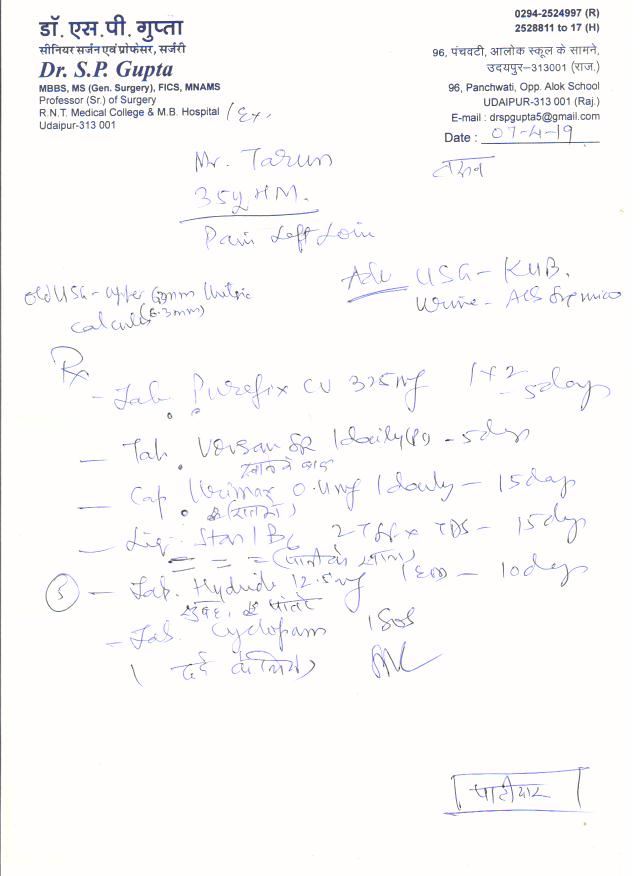 डॉ. एस.पी. गुप्ता
सीनियर सर्जन एवं प्रोफेसर, सर्जरी
Dr. S.P. Gupta
MBBS, MS (Gen. Surgery), FICS, MNAMS
Professor (Sr.) of Surgery
R.N.T. Medical College & M.B. Hospital /Ex.
Udaipur-313 001
0294-2524997 (R)
2528811 to 17 (H)
96, पंचवटी, आलोक स्कूल के सामने,
उदयपुर–313001 (राज.)
96, Panchwati, Opp. Alok School
UDAIPUR-313 001 (Raj.)
E-mail : drspgupta5@gmail.com
Date : 07-4-19
Mr. Tarun
तरुन
35y HM.
Pain Left Loin
Adv USG - KUB.
Urine -
Old USG - upper Uretric
calculi (6.3mm)
Rx
- Tab. CV 325mg 1 x 2 - 5 days
- Tab. SR 1 daily - 5 days
खाने के बाद
- Cap Urimax 0.4mg 1 daily - 15 days
- Liq. B6 TDS - 15 days
5 - Tab. Hydride 12.5mg - 10 days
सुबह,
- Tab. Cyclopam 1 SOS
( दर्द के लिये )